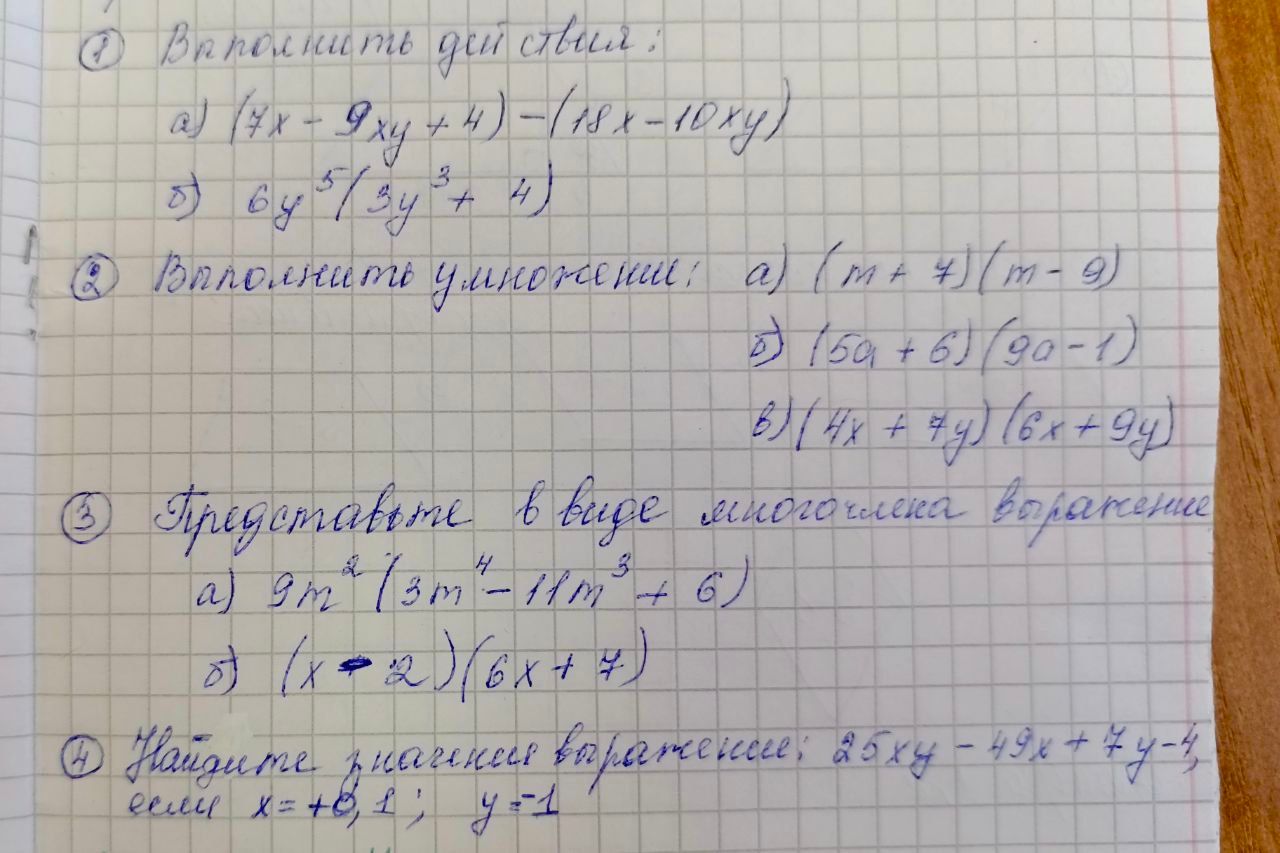 ① Выполнить действия:
а) (7x - 9xy + 4) - (18x - 10xy)
б) 6y⁵(3y³ + 4)
② Выполнить умножение: а) (m + 7)(m - 9)
б) (5a + 6)(9a - 1)
в) (4x + 7y)(6x + 9y)
③ Представьте в виде многочлена выражение
а) 9m²(3m⁴ - 11m³ + 6)
б) (x - 2)(6x + 7)
④ Найдите значения выражение: 25xy - 49x + 7y - 4,
если x = +0,1; y = -1